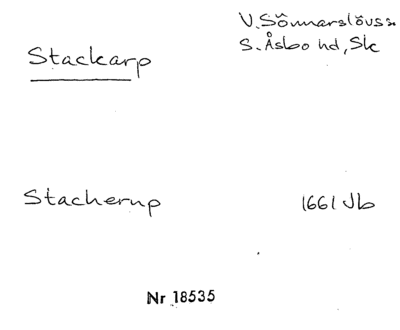 Stackarp
V. Sönnarslövs sn
S. Åsbo hd, Sk
Stacherup 1661 Jb
Nr 18535